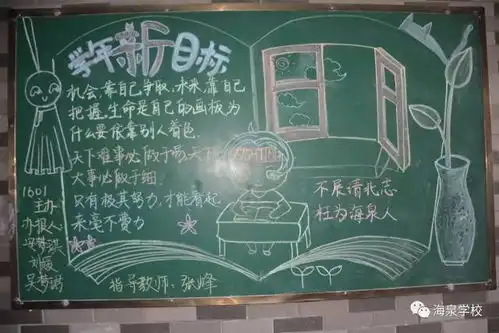 学年新目标
机会靠自己争取.未来靠自己
把握.生命是自己的画板,为
什么要依靠别人着色.
天下难事必做于易天下
大事必做于细.
只有极其努力,才能看起
来毫不费力
不展请长志
枉为海泉人
1601
主办
办报人:
刘媛
吴梦
指导教师:张峰
海泉学校